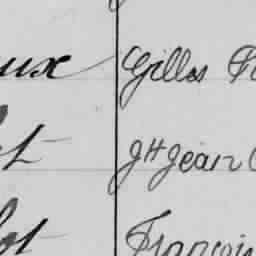 ux Gilles
t Jh Jean
ot François